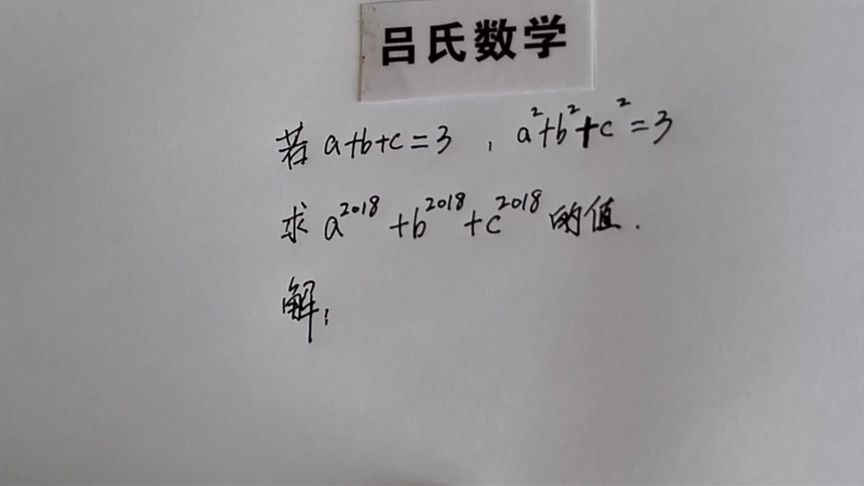 吕氏数学
若 a+b+c=3 , a²+b²+c²=3
求 a²⁰¹⁸+b²⁰¹⁸+c²⁰¹⁸ 的值.
解: